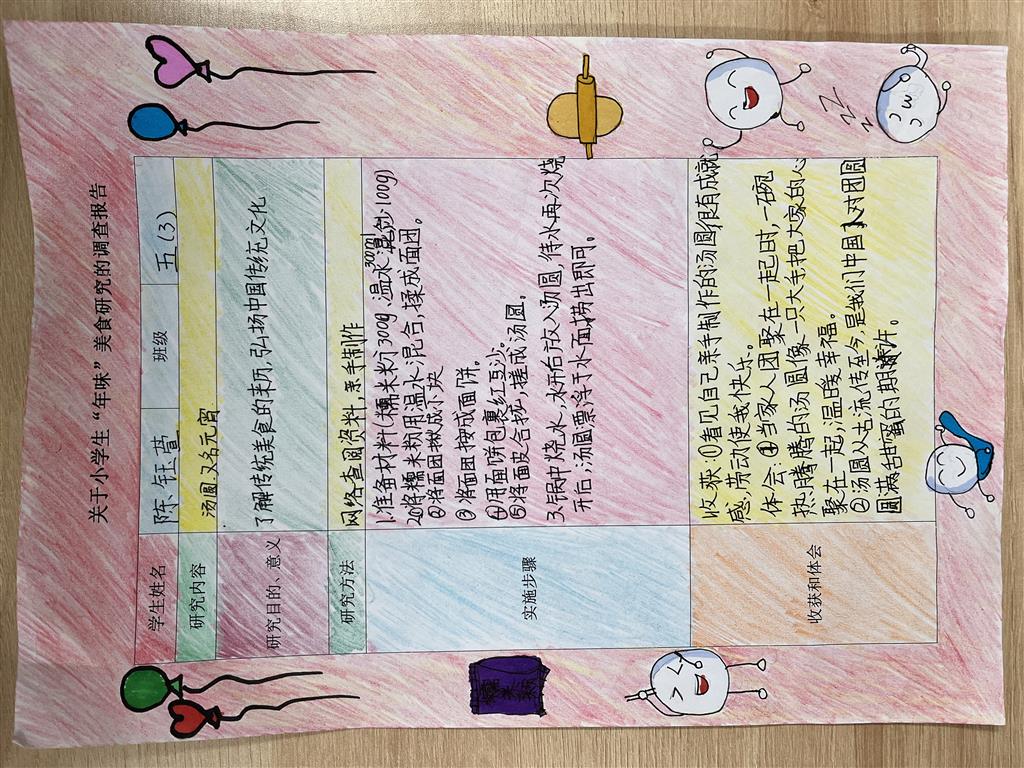 关于小学生“年味”美食研究的调查报告
学生姓名 陈钰萱 班级 五(3)
研究内容 汤圆.又名元宵
研究目的、意义 了解传统美食的来历,弘扬中国传统文化
研究方法 网络查阅资料,亲手制作
实施步骤
1.准备材料(糯米粉300g、温水200ml、100g)
2.①将糯米粉用温水混合,揉成面团。
②将面团揪成小块
③将面团按成面饼。
④用面饼包裹红豆沙。
⑤将面皮合拢,搓成汤圆。
3.锅中烧水,水开后放入汤圆,待水再次烧
开后,汤圆漂浮于水面,捞出即可。
收获和体会
收获:①看见自己亲手制作的汤圆很有成就
感,劳动使我快乐。
体会:①当家人团聚在一起时,一碗
热腾腾的汤圆像一只大手把大家的心
聚在一起,温暖幸福。
②汤圆从古流传至今,是我们中国人对团圆
圆满甜蜜的期许。
糯
米
粉